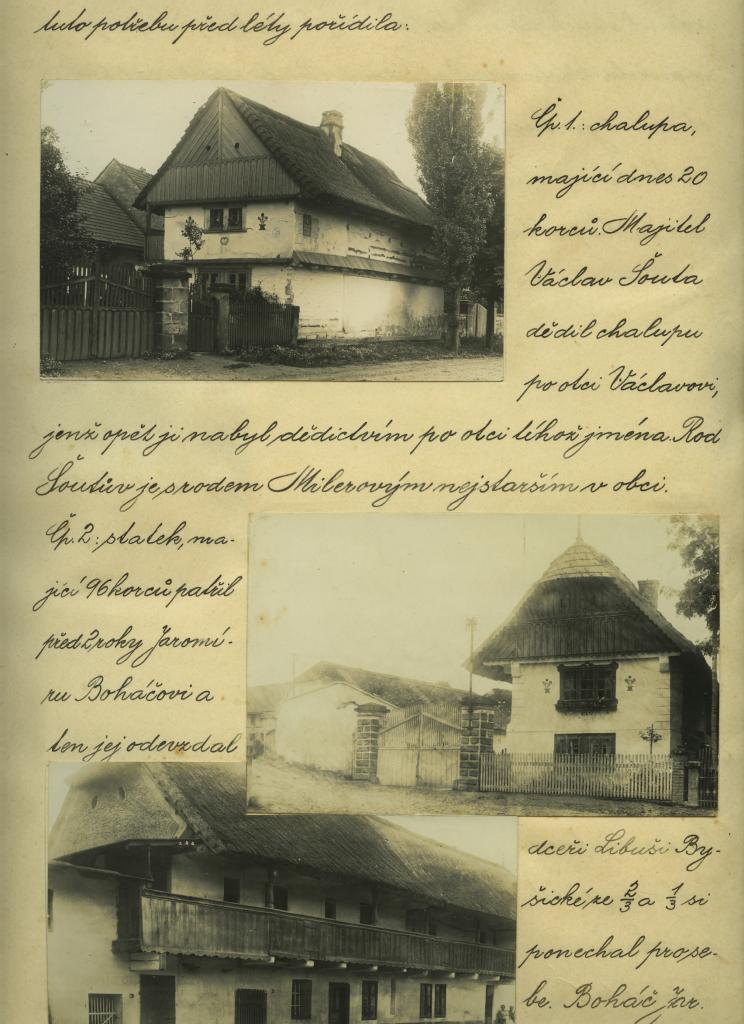 tuto potřebu před léty pořídila:
Čp. 1.: chalupa,
mající dnes 20
korců. Majitel
Václav Šouta
dědil chalupu
po otci Václavovi,
jenž opět ji nabyl dědictvím po otci téhož jména. Rod
Šoutův je s rodem Milerovým nejstarším v obci.
Čp. 2: statek, ma-
jící 96 korců patřil
před 2 roky Jaromí-
ru Boháčovi a
ten jej odevzdal
dceři Libuši By-
šické, ze 2/3 a 1/3 si
ponechal pro se-
be. Boháč Jar.